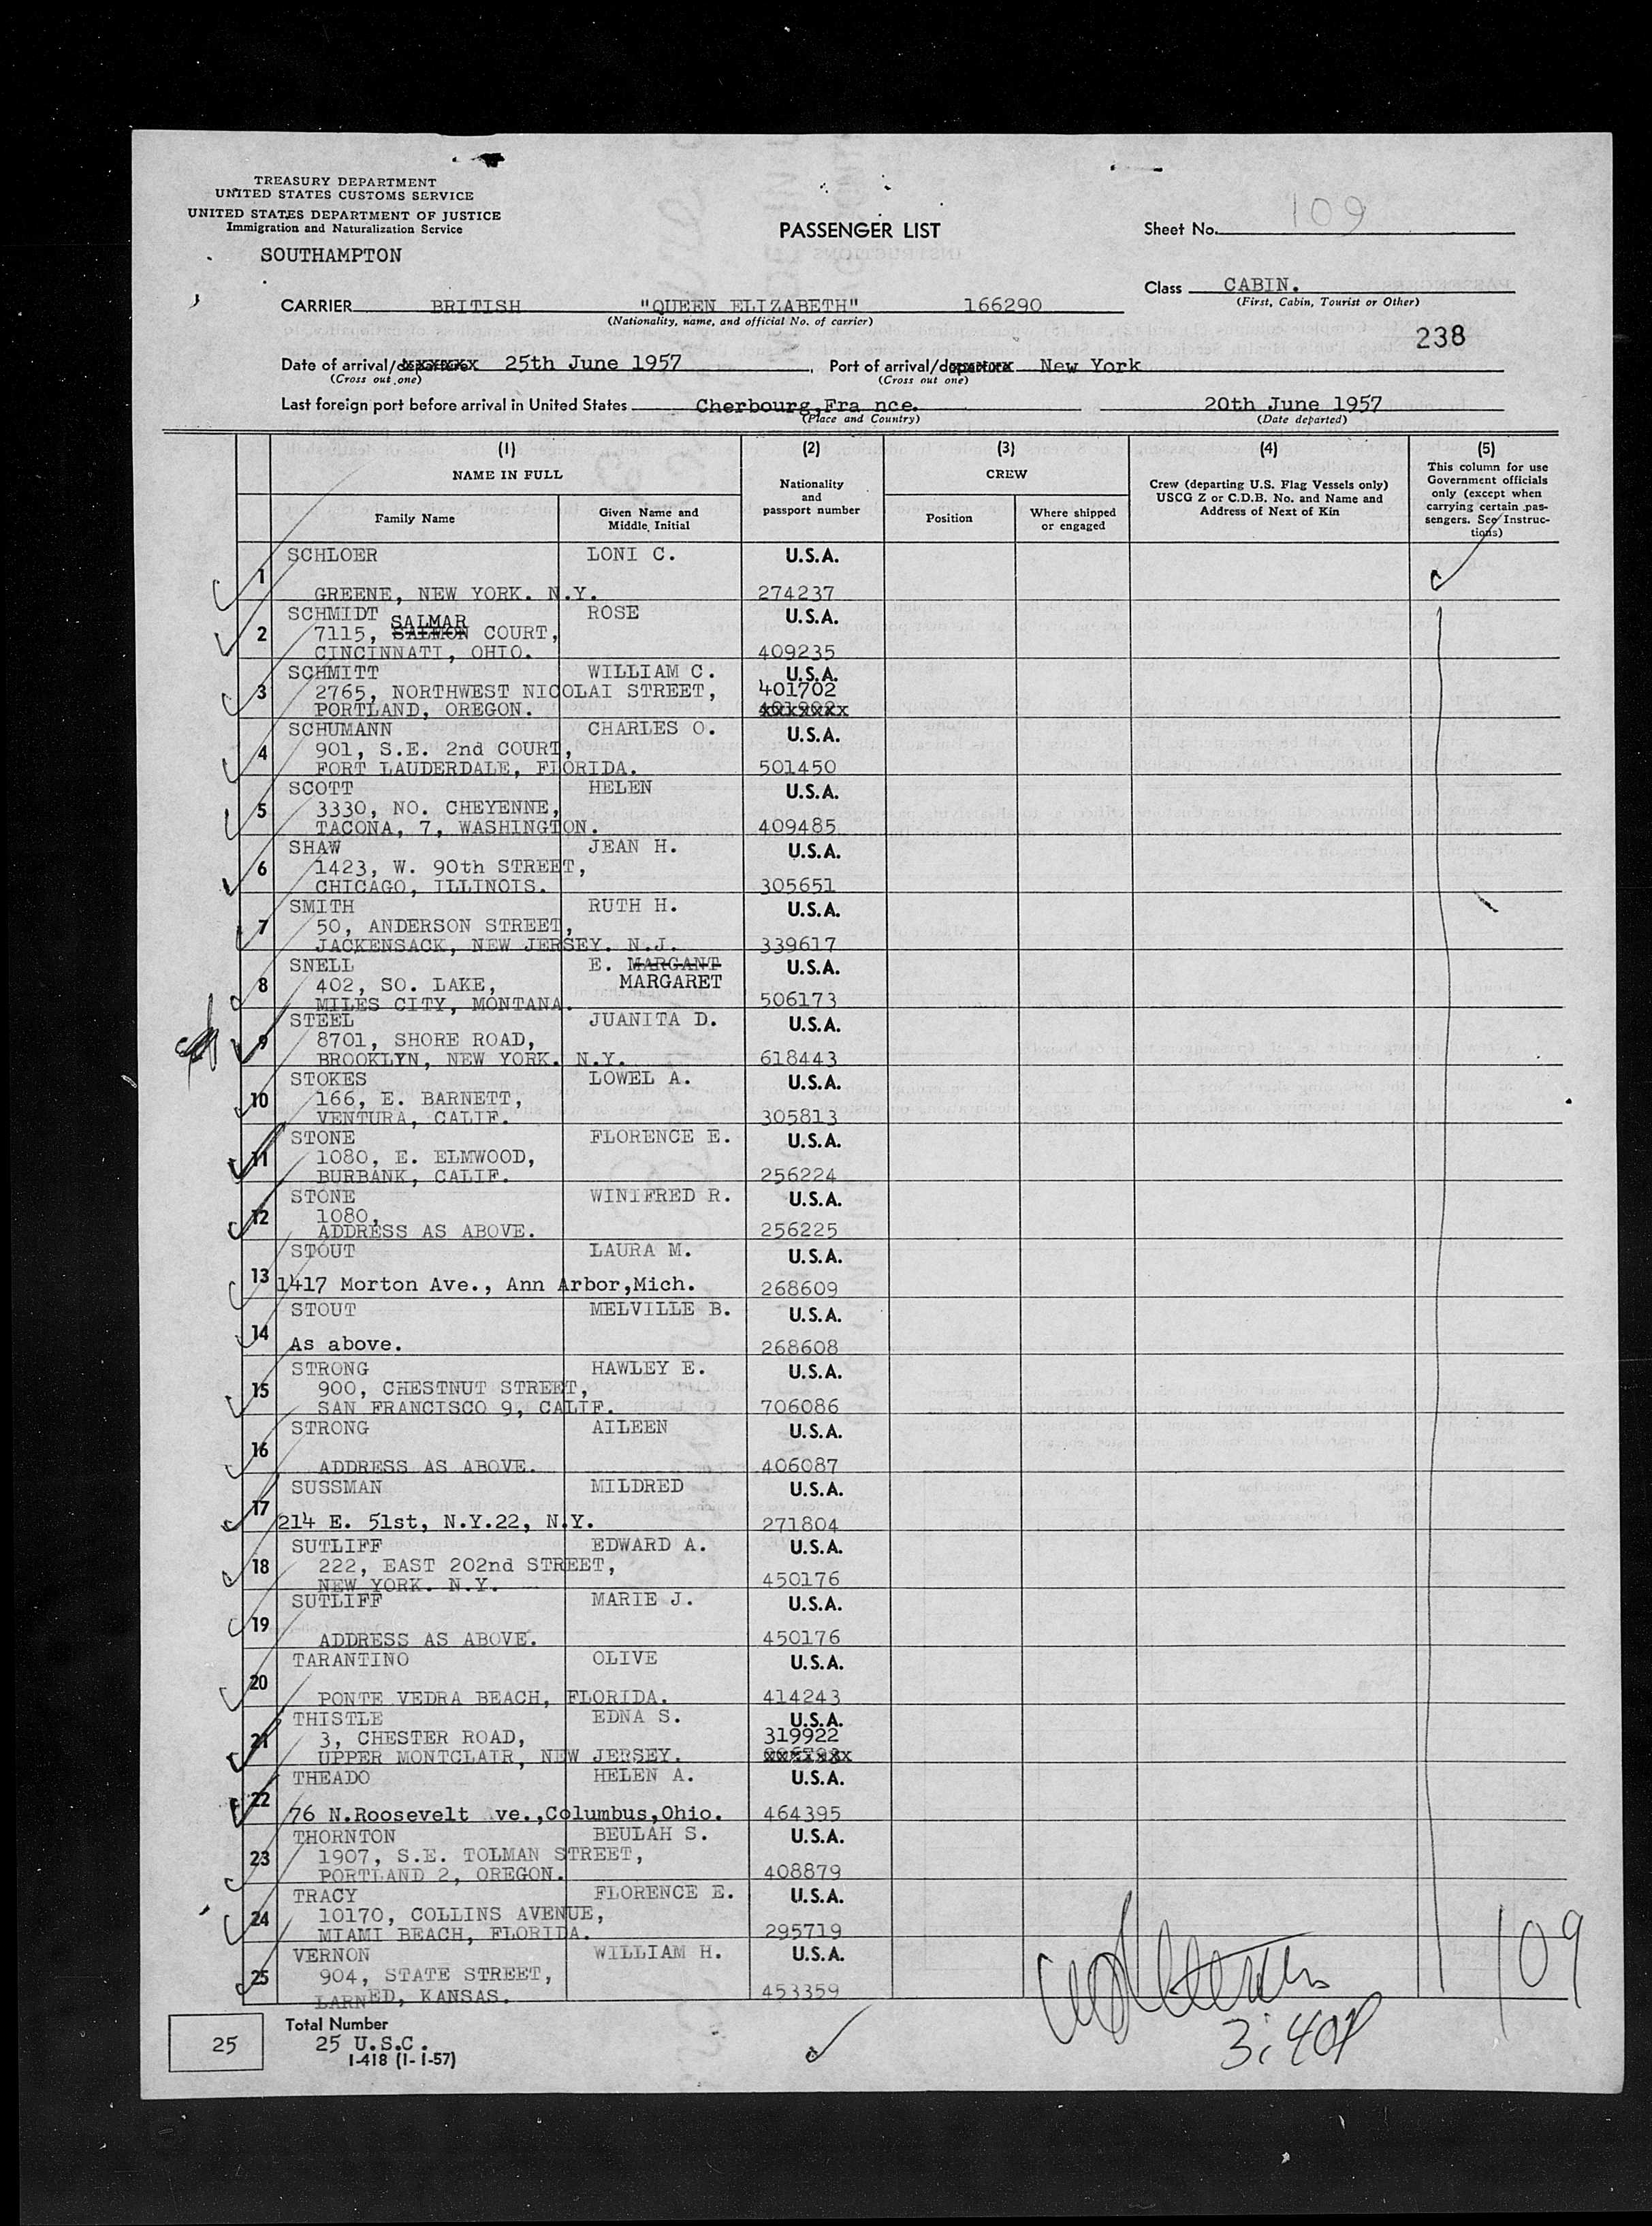 TREASURY DEPARTMENT
UNITED STATES CUSTOMS SERVICE
UNITED STATES DEPARTMENT OF JUSTICE
Immigration and Naturalization Service
SOUTHAMPTON
PASSENGER LIST
Sheet No. 109
Class CABIN.
(First, Cabin, Tourist or Other)
CARRIER BRITISH "QUEEN ELIZABETH" 166290
(Nationality, name, and official No. of carrier)
238
Date of arrival/departure 25th June 1957, Port of arrival/departure New York
(Cross out one) (Cross out one)
Last foreign port before arrival in United States Cherbourg,Fra nce. 20th June 1957
(Place and Country) (Date departed)
(1) (2) (3) (4) (5)
NAME IN FULL
Family Name
Given Name and Middle Initial
Nationality and passport number
CREW
Position
Where shipped or engaged
Crew (departing U.S. Flag Vessels only)
USCG Z or C.D.B. No. and Name and
Address of Next of Kin
This column for use
Government officials
only (except when
carrying certain pas-
sengers. See Instruc-
tions)
1 SCHLOER LONI C. U.S.A.
GREENE, NEW YORK. N.Y. 274237
2 SCHMIDT ROSE U.S.A.
SALMAR
7115, SALMON COURT,
CINCINNATI, OHIO. 409235
3 SCHMITT WILLIAM C. U.S.A.
2765, NORTHWEST NICOLAI STREET, 401702
PORTLAND, OREGON.
4 SCHUMANN CHARLES O. U.S.A.
901, S.E. 2nd COURT,
FORT LAUDERDALE, FLORIDA. 501450
5 SCOTT HELEN U.S.A.
3330, NO. CHEYENNE,
TACONA, 7, WASHINGTON. 409485
6 SHAW JEAN H. U.S.A.
1423, W. 90th STREET,
CHICAGO, ILLINOIS. 305651
7 SMITH RUTH H. U.S.A.
50, ANDERSON STREET,
JACKENSACK, NEW JERSEY. N.J. 339617
8 SNELL E. MARGANT U.S.A.
402, SO. LAKE, MARGARET
MILES CITY, MONTANA. 506173
9 STEEL JUANITA D. U.S.A.
8701, SHORE ROAD,
BROOKLYN, NEW YORK. N.Y. 618443
10 STOKES LOWEL A. U.S.A.
166, E. BARNETT,
VENTURA, CALIF. 305813
11 STONE FLORENCE E. U.S.A.
1080, E. ELMWOOD,
BURBANK, CALIF. 256224
12 STONE WINIFRED R. U.S.A.
1080,
ADDRESS AS ABOVE. 256225
13 STOUT LAURA M. U.S.A.
1417 Morton Ave., Ann Arbor,Mich. 268609
14 STOUT MELVILLE B. U.S.A.
As above. 268608
15 STRONG HAWLEY E. U.S.A.
900, CHESTNUT STREET,
SAN FRANCISCO 9, CALIF. 706086
16 STRONG AILEEN U.S.A.
ADDRESS AS ABOVE. 406087
17 SUSSMAN MILDRED U.S.A.
214 E. 51st, N.Y.22, N.Y. 271804
18 SUTLIFF EDWARD A. U.S.A.
222, EAST 202nd STREET,
NEW YORK. N.Y. 450176
19 SUTLIFF MARIE J. U.S.A.
ADDRESS AS ABOVE. 450176
20 TARANTINO OLIVE U.S.A.
PONTE VEDRA BEACH, FLORIDA. 414243
21 THISTLE EDNA S. U.S.A.
3, CHESTER ROAD, 319922
UPPER MONTCLAIR, NEW JERSEY.
22 THEADO HELEN A. U.S.A.
76 N.Roosevelt ve.,Columbus,Ohio. 464395
23 THORNTON BEULAH S. U.S.A.
1907, S.E. TOLMAN STREET,
PORTLAND 2, OREGON. 408879
24 TRACY FLORENCE E. U.S.A.
10170, COLLINS AVENUE,
MIAMI BEACH, FLORIDA. 295719
25 VERNON WILLIAM H. U.S.A.
904, STATE STREET,
LARNED, KANSAS. 453359
109
3:40P
Total Number
25 25 U.S.C.
I-418 (1-1-57)